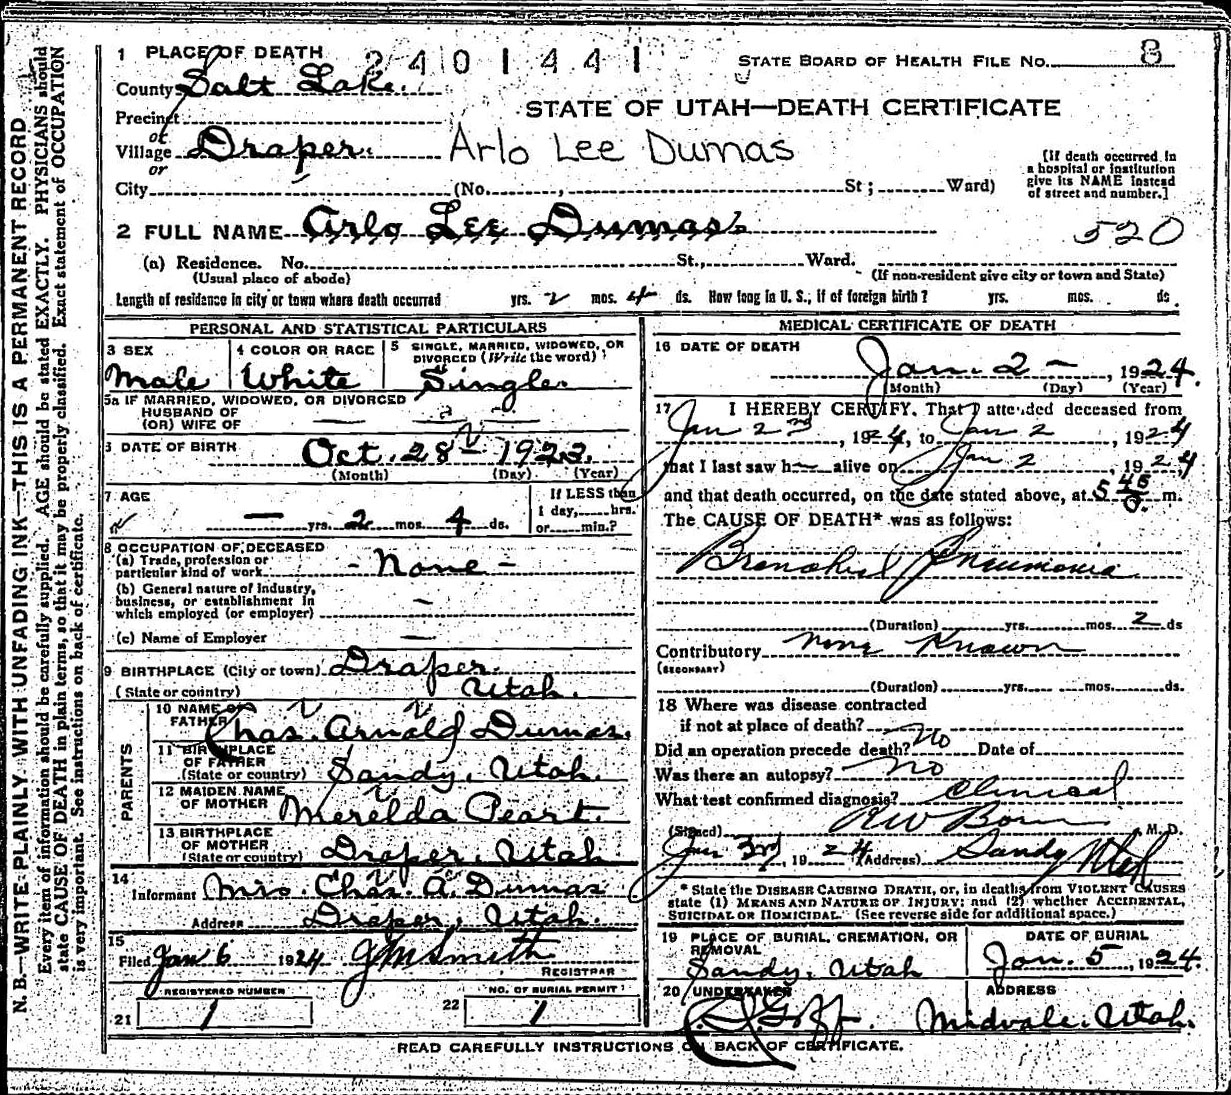 1 PLACE OF DEATH 2401441 STATE BOARD OF HEALTH FILE No. 8
County Salt Lake.
STATE OF UTAH—DEATH CERTIFICATE
Precinct
or
Village Draper. Arlo Lee Dumas
or
City (No. , St; Ward)
[If death occurred in
a hospital or institution
give its NAME instead
of street and number.]
2 FULL NAME Arlo Lee Dumas 520
(a) Residence. No. St., Ward.
(Usual place of abode) (If non-resident give city or town and State)
Length of residence in city or town where death occurred yrs. 2 mos. 4 ds. How long in U. S., if of foreign birth? yrs. mos. ds.
PERSONAL AND STATISTICAL PARTICULARS
3 SEX 4 COLOR OR RACE 5 SINGLE, MARRIED, WIDOWED, OR
DIVORCED (Write the word)
Male White Single
5a IF MARRIED, WIDOWED, OR DIVORCED
HUSBAND OF
(OR) WIFE OF
6 DATE OF BIRTH Oct. 28 - 1923.
(Month) (Day) (Year)
7 AGE
— yrs. 2 mos. 4 ds.
If LESS than
1 day, hrs.
or min.?
8 OCCUPATION OF DECEASED
(a) Trade, profession or
particular kind of work - None -
(b) General nature of industry,
business, or establishment in
which employed (or employer) —
(c) Name of Employer —
9 BIRTHPLACE (City or town) Draper.
(State or country) Utah.
PARENTS
10 NAME OF
FATHER Chas. Arnold Dumas.
11 BIRTHPLACE
OF FATHER
(State or country) Sandy, Utah.
12 MAIDEN NAME
OF MOTHER Merelda Peart.
13 BIRTHPLACE
OF MOTHER
(State or country) Draper, Utah
14
Informant Mrs. Chas. A. Dumas
Address Draper, Utah.
15
Filed Jan 6 1924 J M Smith
REGISTRAR
REGISTERED NUMBER NO. OF BURIAL PERMIT
21 1 22 1
MEDICAL CERTIFICATE OF DEATH
16 DATE OF DEATH
Jan. 2 - , 1924.
(Month) (Day) (Year)
17 I HEREBY CERTIFY, That I attended deceased from
Jan 2nd, 1924, to Jan 2, 1924
that I last saw h alive on Jan 2, 1924
and that death occurred, on the date stated above, at 5 45 m.
The CAUSE OF DEATH* was as follows:
Bronchial Pneumonia
(Duration) yrs. mos. 2 ds
Contributory None Known
(SECONDARY)
(Duration) yrs. mos. ds.
18 Where was disease contracted
if not at place of death?
Did an operation precede death? No Date of
Was there an autopsy? No
What test confirmed diagnosis? Clinical
(Signed) , M. D.
Jan 3rd, 1924 (Address) Sandy Utah
* State the DISEASE CAUSING DEATH, or, in deaths from VIOLENT CAUSES
state (1) MEANS AND NATURE OF INJURY; and (2) whether ACCIDENTAL,
SUICIDAL OR HOMICIDAL. (See reverse side for additional space.)
19 PLACE OF BURIAL, CREMATION, OR
REMOVAL
Sandy, Utah
DATE OF BURIAL
Jan. 5, 1924.
20 UNDERTAKER ADDRESS
Midvale, Utah.
READ CAREFULLY INSTRUCTIONS ON BACK OF CERTIFICATE.
N. B.—WRITE PLAINLY WITH UNFADING INK—THIS IS A PERMANENT RECORD
Every item of information should be carefully supplied. AGE should be stated EXACTLY. PHYSICIANS should
state CAUSE OF DEATH in plain terms, so that it may be properly classified. Exact statement of OCCUPATION
is very important. See instructions on back of certificate.